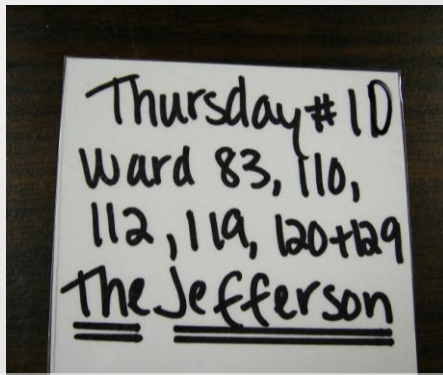 Thursday #1D
Ward 83, 110,
112, 119, 120+129
The Jefferson